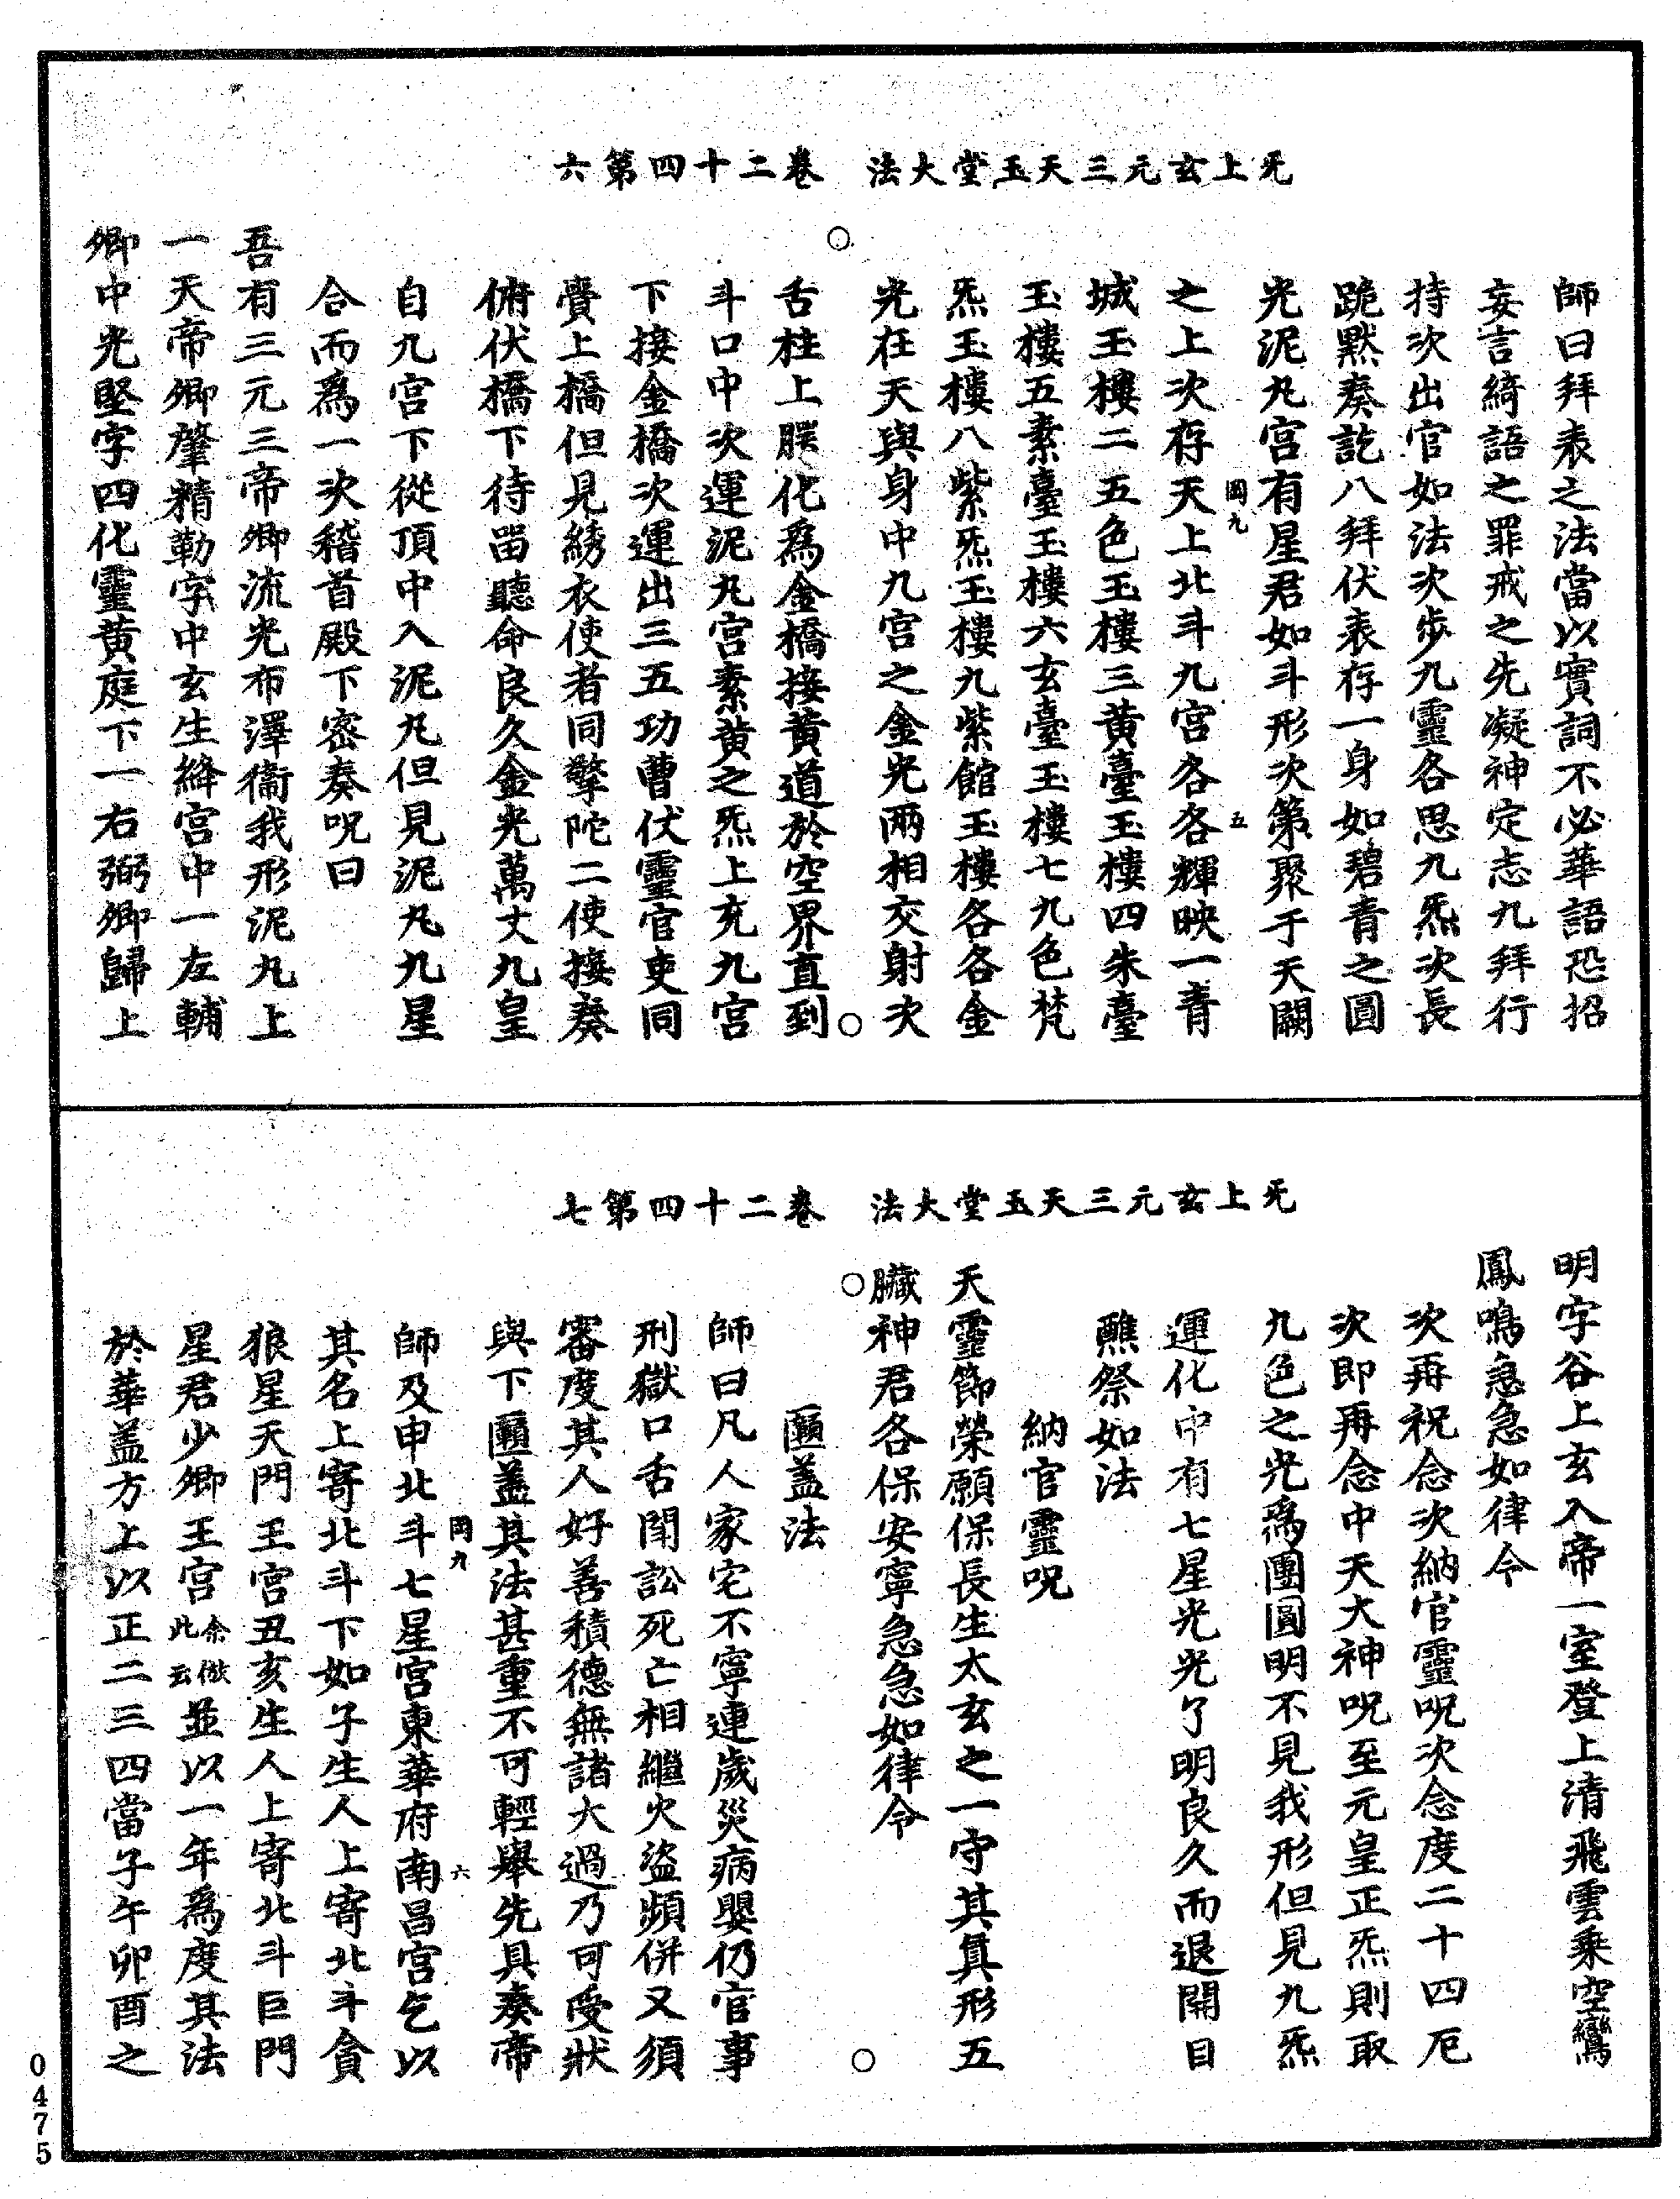 无上玄元三天玉堂大法　卷二十四第六
師曰拜表之法當以實詞不必華語恐招
妄言綺語之罪戒之先凝神定志九拜行
持次出官如法次步九靈各思九炁次長
跪默奏訖八拜伏表存一身如碧青之圓
光泥丸宮有星君如斗形次第聚于天關
岡九　五
之上次存天上北斗九宮各各輝映一青
城玉樓二五色玉樓三黃臺玉樓四朱臺
玉樓五素臺玉樓六玄臺玉樓七九色梵
炁玉樓八紫炁玉樓九紫館玉樓各各金
光在天與身中九宮之金光兩相交射次
舌柱上腭化爲金橋接黃道於空界直到
斗口中次運泥丸宮素黃之炁上充九宮
下接金橋次運出三五功曹伏靈官吏同
賫上橋但見綉衣使者同擎陀二使接奏
俯伏橋下待畱聽命良久金光萬丈九皇
自九宮下從頂中入泥丸但見泥丸九星
合而爲一次稽首殿下密奏呪曰
吾有三元三帝卿流光布澤衞我形泥丸上
一天帝卿肇精勒字中玄生絳宮中一左輔
卿中光堅字四化靈黃庭下一右弼卿歸上
无上玄元三天玉堂大法　卷二十四第七
明字谷上玄入帝一室登上清飛雲乘空鸞
鳳鳴急急如律令
次再祝念次納官靈呪次念度二十四厄
次即再念中天大神呪至元皇正炁則取
九色之光爲團圓明不見我形但見九炁
運化中有七星光光了明良久而退開目
醮祭如法
納官靈呪
天靈節榮願保長生太玄之一守其真形五
臟神君各保安寧急急如律令
匾蓋法
師曰凡人家宅不寧連歲災病嬰仍官事
刑獄口舌鬭訟死亡相繼火盜頻併又須
審度其人好善積德無諸大過乃可受狀
與下匾蓋其法甚重不可輕舉先具奏帝
師及申北斗七星宮東華府南昌宮乞以
岡九　六
其名上寄北斗下如子生人上寄北斗貪
狼星天門王宮丑亥生人上寄北斗巨門
星君少卿王宮余倣此云並以一年爲度其法
於華蓋方上以正二三四當子午卯酉之
0475